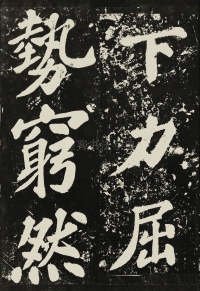 下力屈
勢窮然